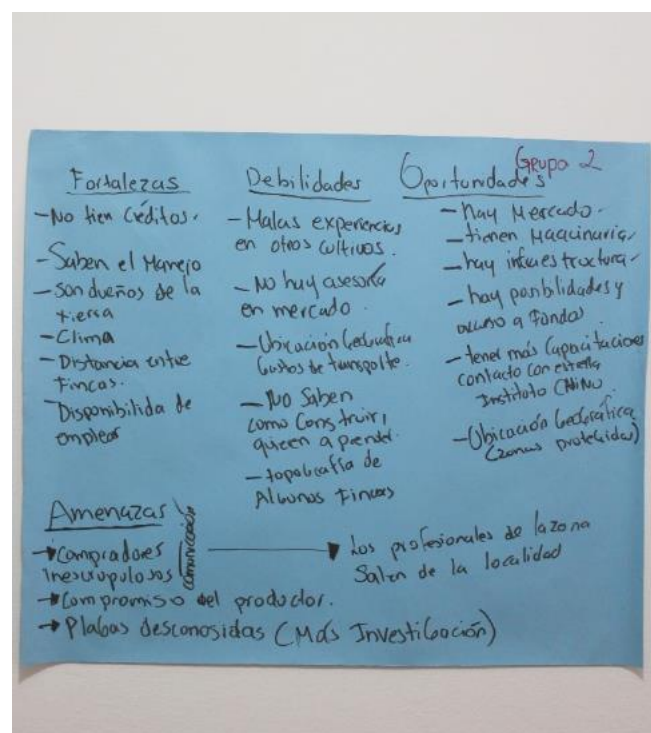 Grupo 2
Fortalezas
-No tien Créditos.
-Saben el Manejo
-son dueños de la
tierra
-Clima
-Distancia entre
Fincas.
Disponibilida de
emplear
Debilidades
-Malas experiencias
en otros cultivos.
-No hay asesoría
en mercado.
-Ubicación Geografica
Costos de transpolte.
-No Saben
como Construir,
quieen aprender.
-topografía de
Algunos Fincas
Oportunidades
-hay Mercado.
-tienen Maquinaria
-hay infraestructura
-hay posibilidades y
acceso a Fondos
-tener más Capacitaciones
contacto con
Instituto
-Ubicación Geográfica
(zonas protegidas)
Amenazas
→Compradores
inescrupulosos
comunicación
Los profesionales de la zona
Salen de la localidad
→Compromiso del productor.
→Plagas desconosidas (Más Investigación)